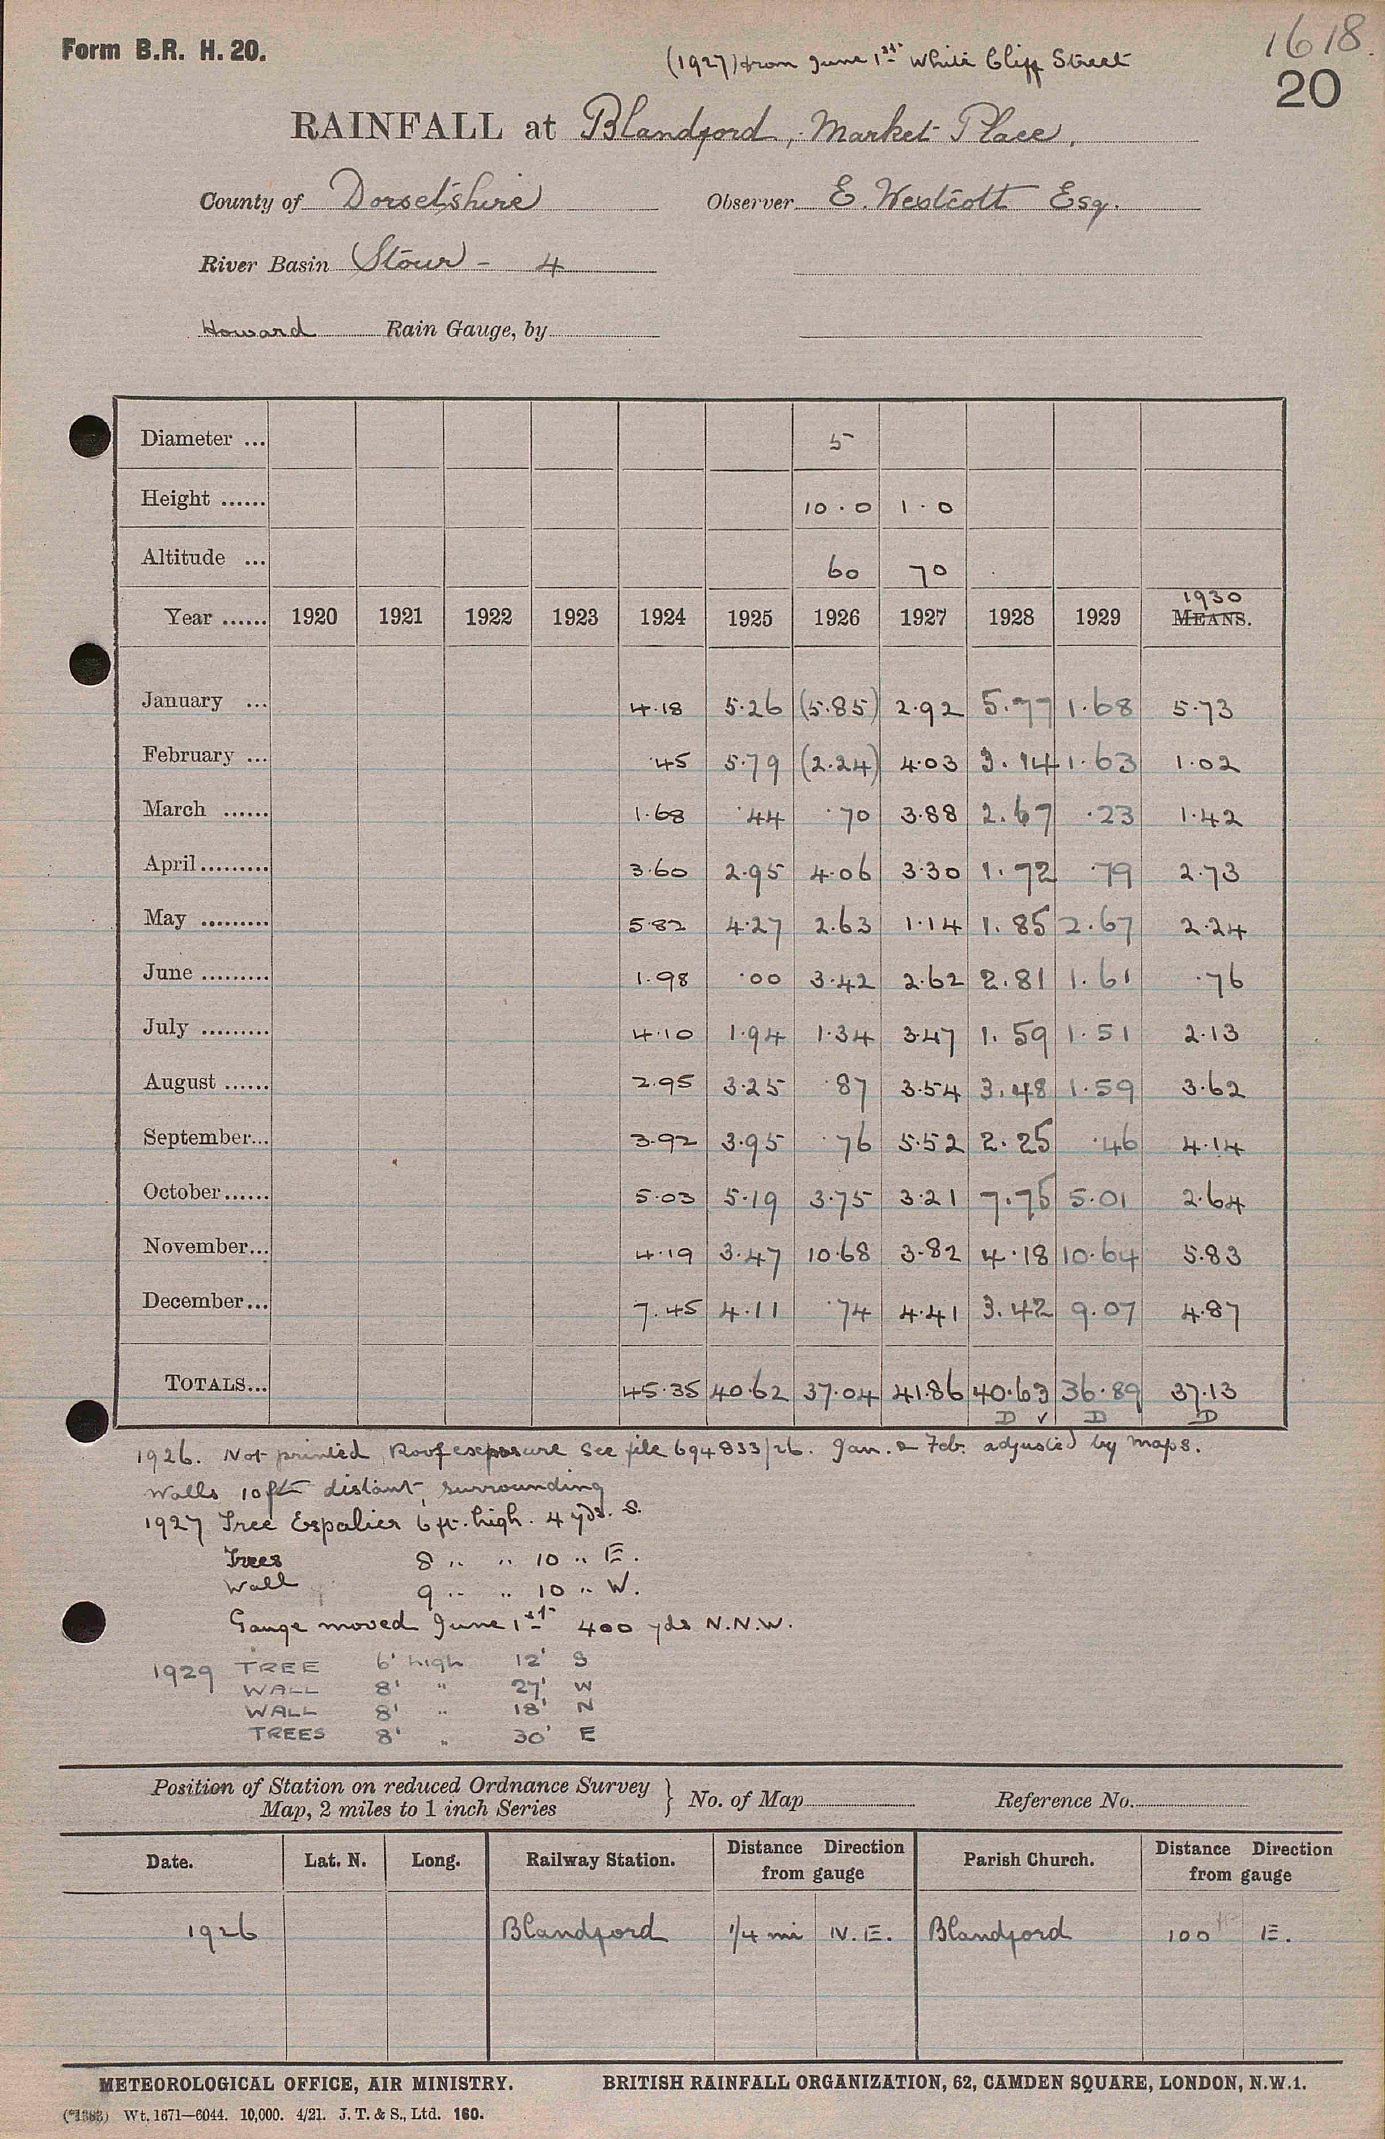 Form B.R. H. 20.
1618.
(1927) from June 1st White Cliff Street
20
RAINFALL at Blandford, Market Place.
County of Dorsetshire Observer E. Westcott Esq.
River Basin Stour - 4
Howard Rain Gauge, by
Diameter ... 5
Height ...... 10.0 1.0
Altitude ... 60 70
1930
Year ...... 1920 1921 1922 1923 1924 1925 1926 1927 1928 1929 MEANS.
January ... 4.18 5.26 (5.85) 2.92 5.77 1.68 5.73
February ... .45 5.79 (2.24) 4.03 3.14 1.63 1.02
March ...... 1.68 .44 .70 3.88 2.67 .23 1.42
April ......... 3.60 2.95 4.06 3.30 1.72 .79 2.73
May ......... 5.82 4.27 2.63 1.14 1.85 2.67 2.24
June ......... 1.98 .00 3.42 2.62 2.81 1.61 .76
July ......... 4.10 1.94 1.34 3.47 1.59 1.51 2.13
August ...... 2.95 3.25 .87 3.54 3.48 1.59 3.62
September... 3.92 3.95 .76 5.52 2.25 .46 4.14
October...... 5.03 5.19 3.75 3.21 7.75 5.01 2.64
November... 4.19 3.47 10.68 3.82 4.18 10.64 5.83
December... 7.45 4.11 .74 4.41 3.42 9.07 4.87
TOTALS... 45.35 40.62 37.04 41.86 40.63 36.89 37.13
D v D D
1926. Not printed, Roof exposure See file 694833/26. Jan. & Feb. adjusted by maps.
Walls 10ft distant, surrounding
1927 Tree Espalier 6 ft. high. 4 yds. S.
Trees 8 " " 10 " E.
Wall 9 " " 10 " W.
Gauge moved June 1st 400 yds N.N.W.
1929 TREE 6' high 12' S
WALL 8' " 27' W
WALL 8' " 18' N
TREES 8' " 30' E
Position of Station on reduced Ordnance Survey
Map, 2 miles to 1 inch Series } No. of Map Reference No.
Date. Lat. N. Long. Railway Station. Distance Direction from gauge Parish Church. Distance Direction from gauge
1926 Blandford 1/4 mi N.E. Blandford 100 E.
METEOROLOGICAL OFFICE, AIR MINISTRY. BRITISH RAINFALL ORGANIZATION, 62, CAMDEN SQUARE, LONDON, N.W.1.
Wt. 1671—6044. 10,000. 4/21. J. T. & S., Ltd. 160.